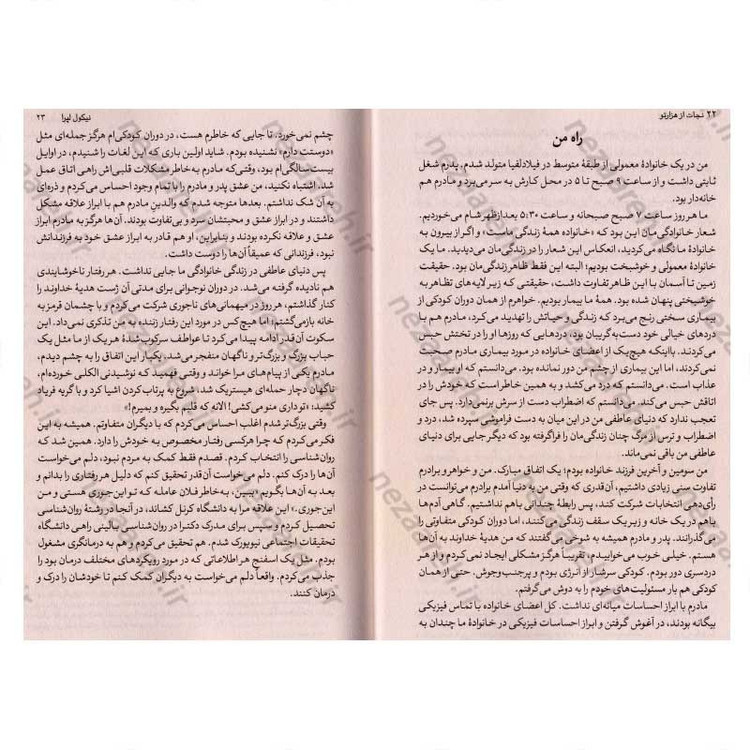 ۲۲ نجات از هزارتو
راه من
من در یک خانوادهٔ معمولی از طبقهٔ متوسط در فیلادلفیا متولد شدم. پدرم شغل
ثابتی داشت و از ساعت ۹ صبح تا ۵ در محل کارش به سر می‌برد و مادرم هم
خانه‌دار بود.
ما هر روز ساعت ۷ صبح صبحانه و ساعت ۵:۳۰ بعدازظهر شام می‌خوردیم.
شعار خانوادگی‌مان این بود که «خانواده همهٔ زندگی ماست» و اگر از بیرون به
خانوادهٔ ما نگاه می‌کردید، انعکاس این شعار را در زندگی‌مان می‌دیدید. ما یک
خانوادهٔ معمولی و خوشبخت بودیم؛ البته این فقط ظاهر زندگی‌مان بود. حقیقت
زمین تا آسمان با این ظاهر تفاوت داشت، حقیقتی که زیر لایه‌های ظاهر به
خوشبختی پنهان شده بود. همهٔ ما بیمار بودیم. خواهرم از همان دوران کودکی از
بیماری سختی رنج می‌برد که زندگی و حیاتش را تهدید می‌کرد، مادرم هم با
دردهای خیالی خود دست‌به‌گریبان بود، دردهایی که روزها او را در تختش حبس
می‌کردند. بااینکه هیچ‌یک از اعضای خانواده در مورد بیماری مادرم صحبت
نمی‌کردند، اما این بیماری از چشم من دور نمانده بود. می‌دانستم که او بیمار و در
عذاب است. می‌دانستم که درد می‌کشد و به همین خاطر است که خودش را در
اتاقش حبس می‌کند. می‌دانستم که اضطراب دست از سرش برنمی‌دارد. پس جای
تعجب ندارد که دنیای عاطفی من در این میان به دست فراموشی سپرده شد، درد و
اضطراب و ترس از مرگ چنان زندگی‌مان را فراگرفته بود که دیگر جایی برای دنیای
عاطفی من باقی نمی‌ماند.
من سومین و آخرین فرزند خانواده بودم؛ یک اتفاق مبارک. من و خواهر و برادرم
تفاوت سنی زیادی داشتیم، آن‌قدری که وقتی من به دنیا آمدم برادرم می‌توانست در
رأی‌دهی انتخابات شرکت کند، پس رابطهٔ چندانی باهم نداشتیم. گاهی آدم‌ها
باهم در یک خانه و زیر یک سقف زندگی می‌کنند، اما دوران کودکی متفاوتی را
می‌گذرانند. پدر و مادرم همیشه به شوخی می‌گفتند که من هدیهٔ خداوند به آن‌ها
هستم. خیلی خوب می‌خوابیدم، تقریباً هرگز مشکلی ایجاد نمی‌کردم و از هر
دردسری دور بودم. کودکی سرشار از انرژی بودم و پرجنب‌وجوش. حتی از همان
کودکی هم بار مسئولیت‌های خودم را به دوش می‌گرفتم.
مادرم با ابراز احساسات میانه‌ای نداشت. کل اعضای خانواده با تماس فیزیکی
بیگانه بودند، در آغوش گرفتن و ابراز احساسات فیزیکی در خانوادهٔ ما چندان به
نیکول لپرا ۲۳
چشم نمی‌خورد. تا جایی که خاطرم هست، در دوران کودکی‌ام هرگز جمله‌ای مثل
«دوستت دارم» نشنیده بودم. شاید اولین باری که این لغات را شنیدم، در اوایل
بیست سالگی‌ام بود، وقتی‌که مادرم به‌خاطر مشکلات قلبی‌اش راهی اتاق عمل
شد. اشتباه نکنید، من عشق پدر و مادرم را با تمام وجود احساس می‌کردم و ذره‌ای
به آن شک نداشتم. بعدها متوجه شدم که والدین مادرم هم با ابراز علاقه مشکل
داشتند و در ابراز عشق و محبتشان سرد و بی‌تفاوت بودند. آن‌ها هرگز به مادرم ابراز
عشق و علاقه نکرده بودند و بنابراین، او هم قادر به ابراز عشق خود به فرزندانش
نبود، فرزندانی که عمیقاً آن‌ها را دوست داشت.
پس دنیای عاطفی در زندگی خانوادگی ما جایی نداشت. هر رفتار ناخوشایندی
هم نادیده گرفته می‌شد. در دوران نوجوانی برای مدتی آن ژست هدیهٔ خداوند را
کنار گذاشتم، هر روز در میهمانی‌های ناجوری شرکت می‌کردم و با چشمان قرمز به
خانه بازمی‌گشتم؛ اما هیچ‌کس در مورد این رفتار زننده به من تذکری نمی‌داد. این
سکوت آن‌قدر ادامه پیدا می‌کرد تا عواطف سرکوب‌شدهٔ هر یک از ما مثل یک
حباب بزرگ و بزرگ‌تر و ناگهان منفجر می‌شد. یکبار این اتفاق را به چشم دیدم،
مادرم یکی از پیام‌های مرا خواند و وقتی فهمید که نوشیدنی الکلی خورده‌ام،
ناگهان دچار حمله‌ای هیستریک شد، شروع به پرتاب‌کردن اشیا کرد و با گریه فریاد
کشید: «تو داری منو می‌کشی! الانه که قلبم بگیره و بمیرم!»
وقتی بزرگ‌تر شدم اغلب احساس می‌کردم که با دیگران متفاوتم. همیشه به این
فکر می‌کردم که چرا هرکسی رفتار مخصوص به خودش را دارد. همین شد که
روان‌شناسی را انتخاب کردم. قصدم فقط کمک به مردم نبود، دلم می‌خواست
آن‌ها را درک کنم. دلم می‌خواست آن‌قدر تحقیق کنم که دلیل هر رفتاری را بدانم و
بعد به آن‌ها بگویم «ببین، به‌خاطر فلان عامله که تو این‌جوری هستی و من
این‌جوری.» این علاقه مرا به دانشگاه کرنل کشاند، در آنجا در رشتهٔ روان‌شناسی
تحصیل کردم و سپس برای مدرک دکترا در روان‌شناسی بالینی راهی دانشگاه
تحقیقات اجتماعی نیویورک شدم. هم تحقیق می‌کردم و هم به درمانگری مشغول
بودم، مثل یک اسفنج هر اطلاعاتی که در مورد رویکردهای مختلف درمان بود را
جذب می‌کردم. واقعاً دلم می‌خواست به دیگران کمک کنم تا خودشان را درک و
درمان کنند.